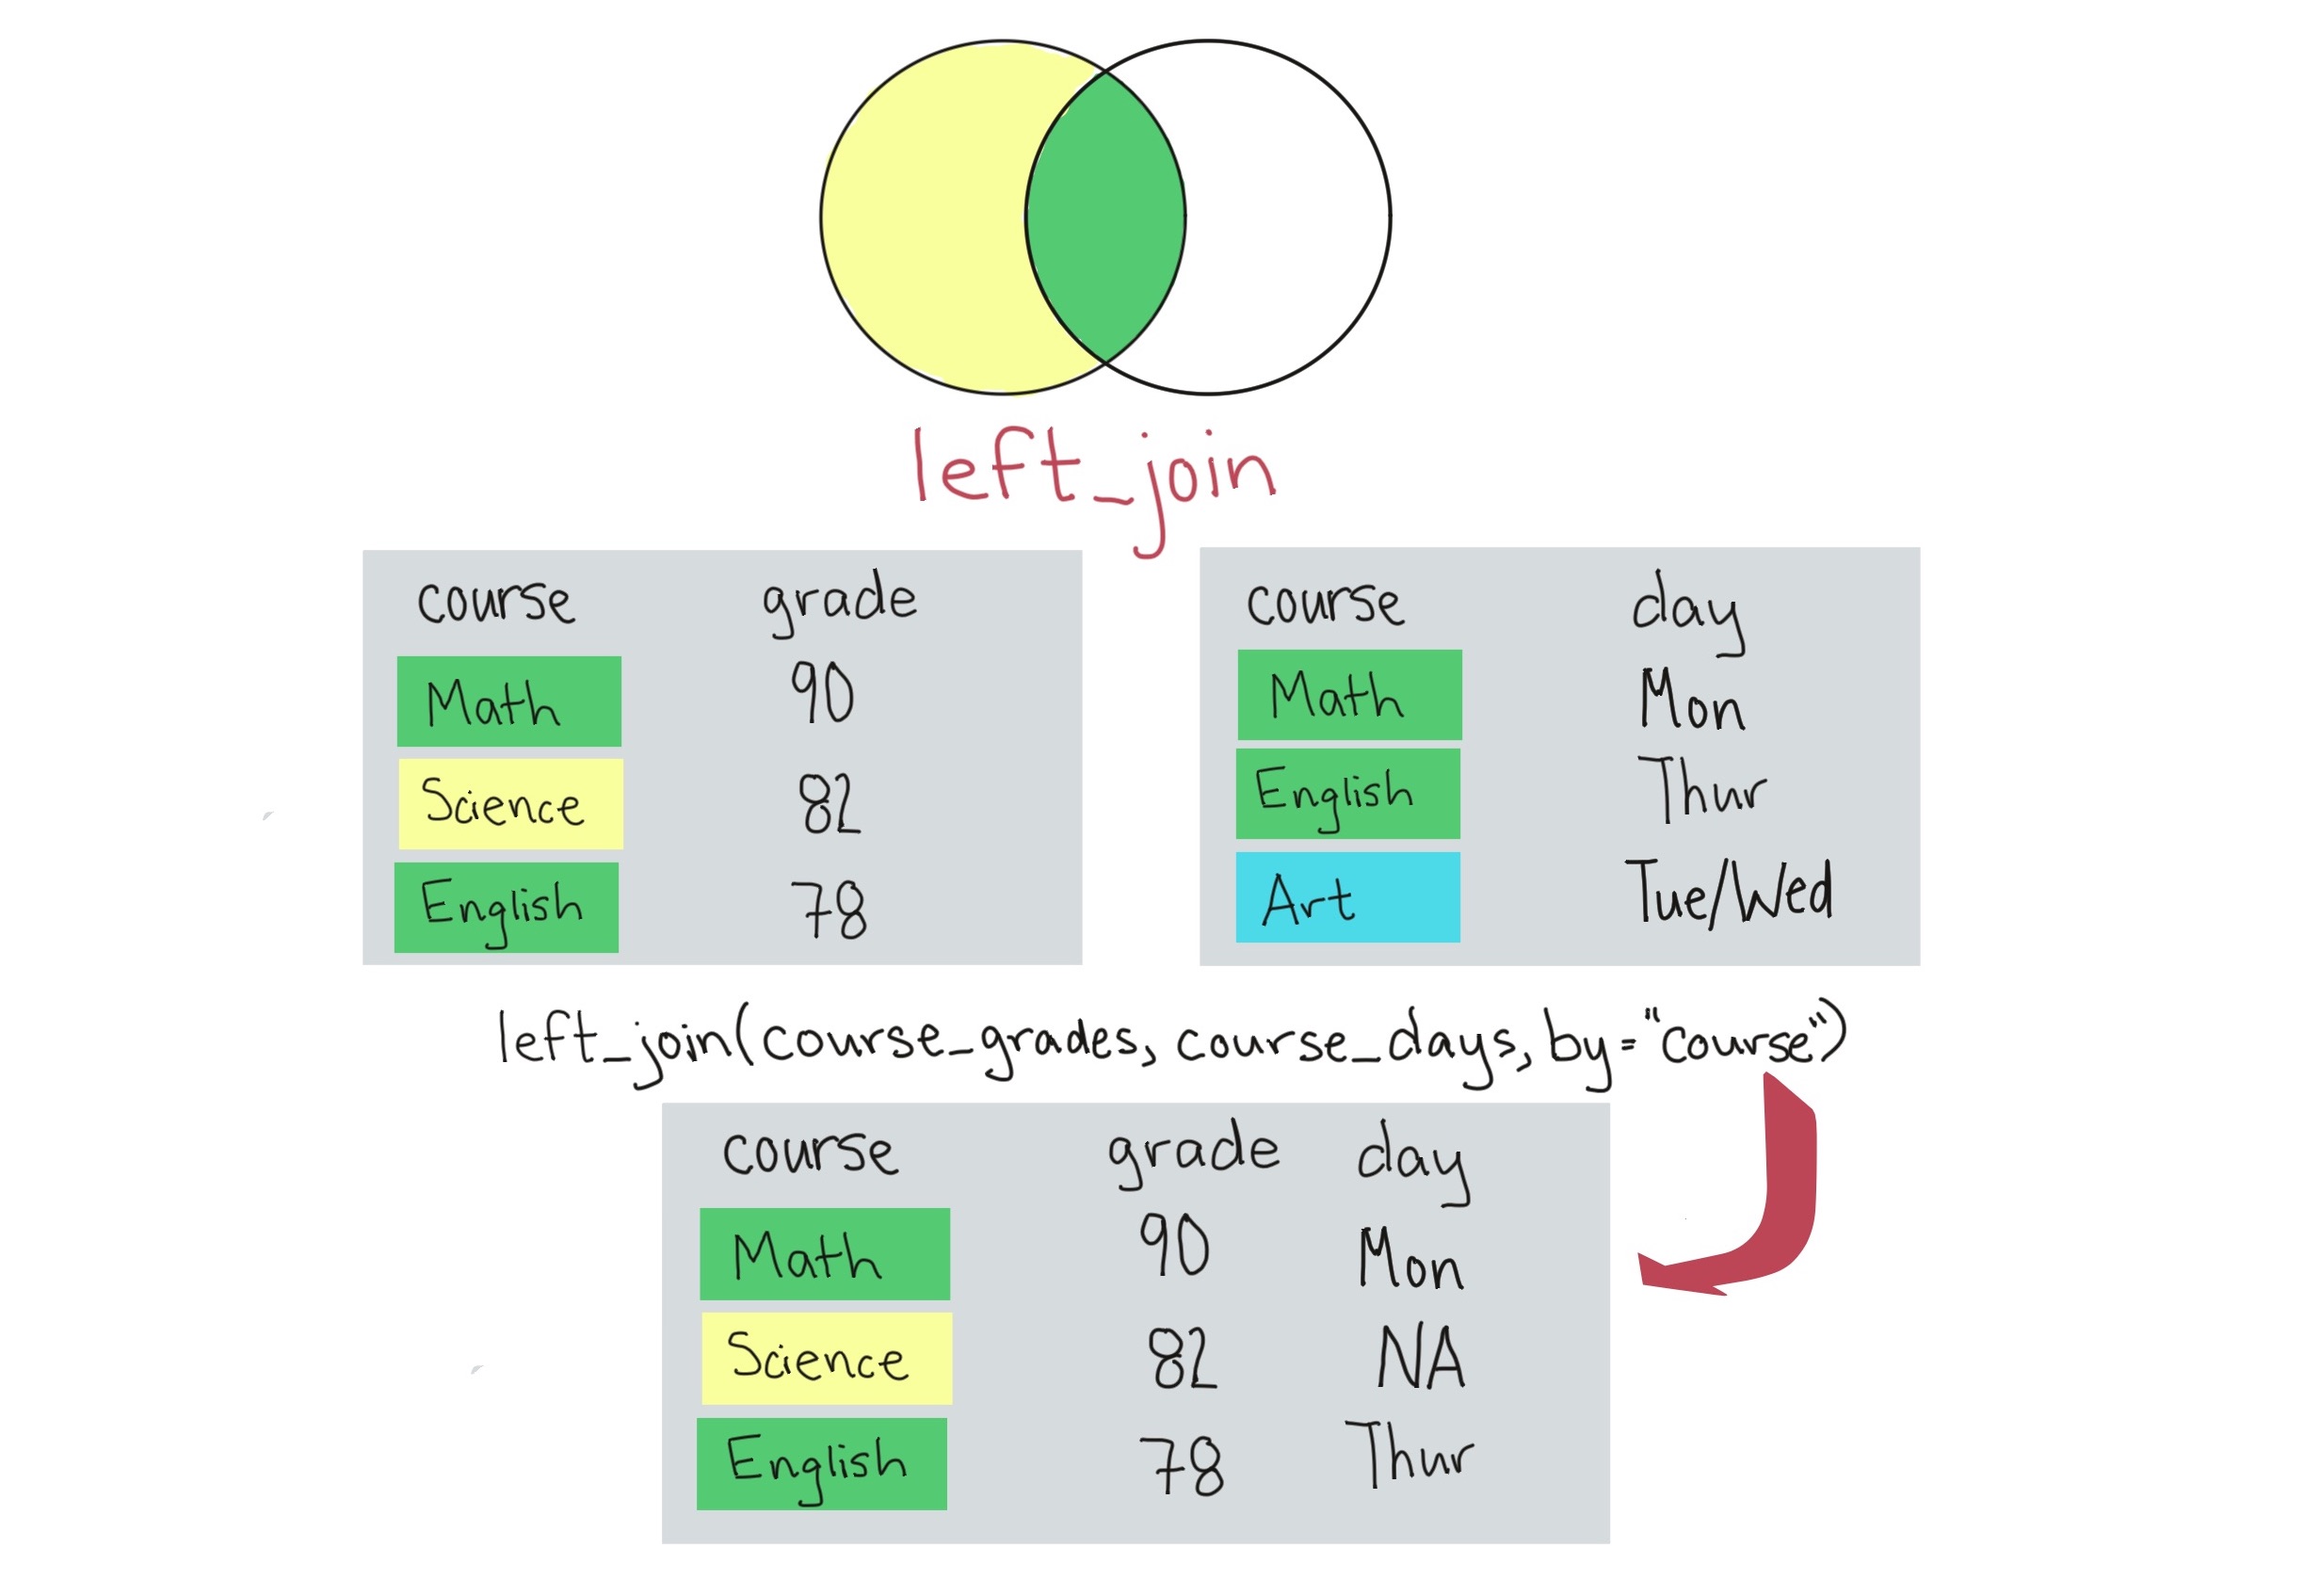 left_join
course grade
Math 90
Science 82
English 78
course day
Math Mon
English Thur
Art Tue/Wed
left_join(course_grades, course_days, by="course")
course grade day
Math 90 Mon
Science 82 NA
English 78 Thur